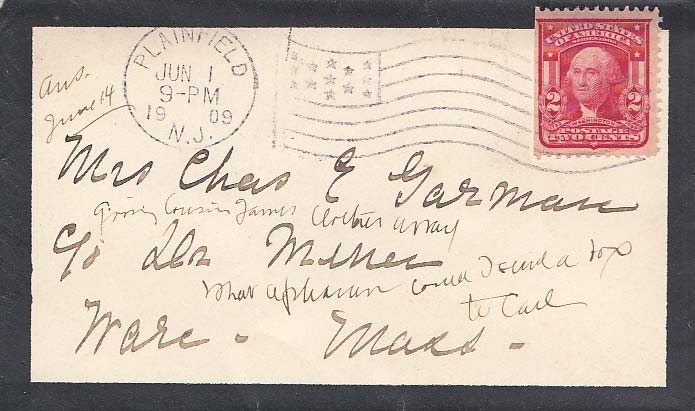 PLAINFIELD
JUN 1
9-PM
19 09
N.J.
UNITED STATES
OF AMERICA
2 2
WASHINGTON
POSTAGE
TWO CENTS
ans.
June 14
Mrs Chas E Garman
giving Cousin James clothes away
c/o Dr Miner
what could I send a box
to Carl
Ware - Mass -